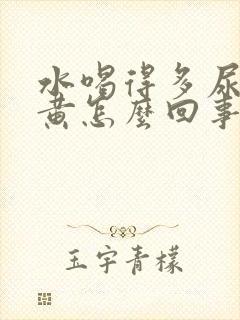 水喝得多尿
黄怎麼回事
玉宇青檬